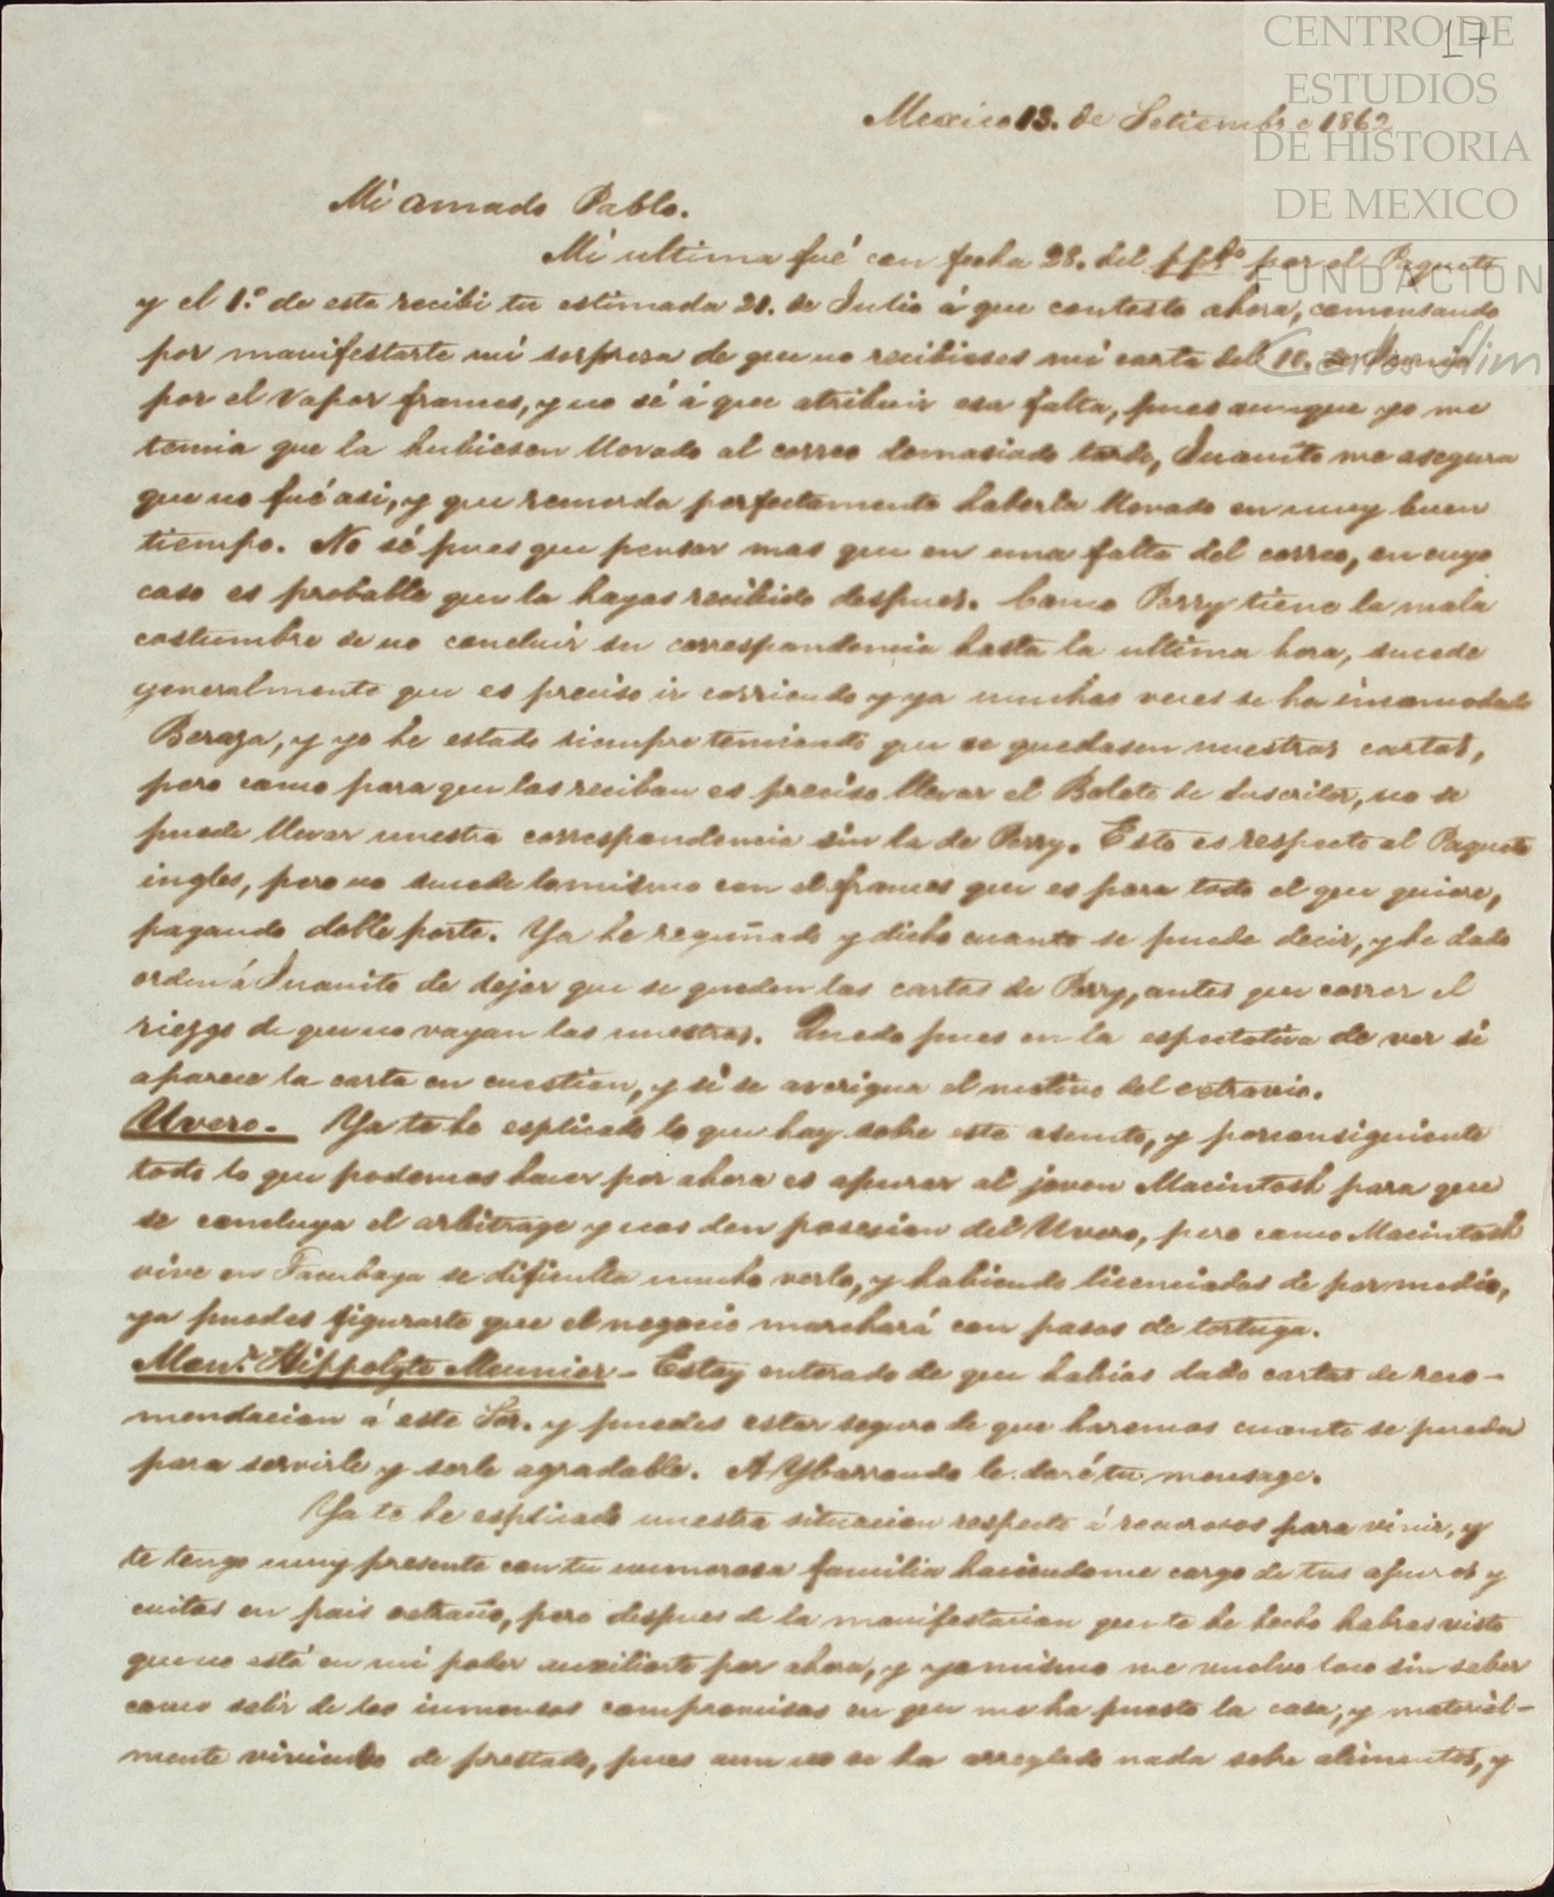 CENTRO DE
ESTUDIOS
DE HISTORIA
DE MEXICO
FUNDACIÓN
Carlos Slim
17
Mexico 13. de Setiembre 1862
Mi amado Pablo.
Mi ultima fué con fecha 28. del ppdo por el Paquete
y el 1.º de este recibi tu estimada 21. de Julio á que contesto ahora, comensando
por manifestarte mi sorpresa de que no recibieses mi carta del 10. de Junio
por el vapor frances, y no sé á que atribuir esa falta, pues aunque yo me
temia que la hubiesen llevado al correo demasiado tarde, Juanito me asegura
que no fué asi, y que recuerda perfectamente haberla llevado en muy buen
tiempo. No sé pues que pensar mas que en una falta del correo, en cuyo
caso es probable que la hayas recibido despues. Como Perry tiene la mala
costumbre de no concluir su correspondencia hasta la ultima hora, sucede
generalmente que es preciso ir corriendo y ya muchas veces se ha incomodado
Beraza, y yo he estado siempre temiendo que se quedasen nuestras cartas,
pero como para que las reciban es preciso llevar el Boleto de suscritor, no se
puede llevar nuestra correspondencia sin la de Perry. Esto es respecto al Paquete
ingles, pero no sucede lo mismo con el frances que es para todo el que quiere,
pagando doble porte. Ya he regañado y dicho cuanto se puede decir, y he dado
orden á Juanito de dejar que se queden las cartas de Perry, antes que correr el
riezgo de que no vayan las nuestras. Quedo pues en la espectativa de ver si
aparece la carta en cuestion, y si se averigua el motivo del extravio.
Uvero. Ya te he esplicado lo que hay sobre este asunto, y porconsiguiente
todo lo que podemos hacer por ahora es apurar al joven Macintosh para que
se concluya el arbitrage y nos den posesion del Uvero, pero como Macintosh
vive en Tacubaya se dificulta mucho verlo, y habiendo licenciados de por medio,
ya puedes figurarte que el negocio marchará con pasos de tortuga.
Monr. Hippolyte Meunier - Estoy enterado de que habias dado cartas de reco-
mendacion á este Sor. y puedes estar seguro de que haremos cuanto se pueda
para servirle y serle agradable. A Ybarrondo le daré tu mensage.
Ya te he esplicado nuestra situacion respecto á recursos para vivir, y
te tengo muy presente con tu numerosa familia haciendome cargo de tus apuros y
cuitas en pais estraño, pero despues de la manifestacion que te he hecho habras visto
que no está en mi poder auxiliarte por ahora, y yo mismo me vuelvo loco sin saber
como salir de los inmensos compromisos en que me ha puesto la casa, y material-
mente viviendo de prestado, pues aun no se ha arreglado nada sobre alimentos, y